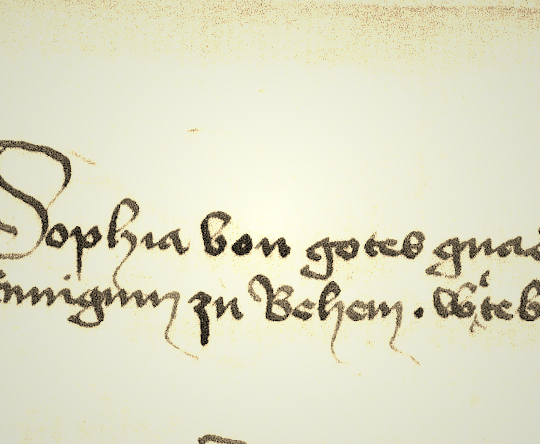 Sophia von gotes gnad
unnigynn zu Behem .